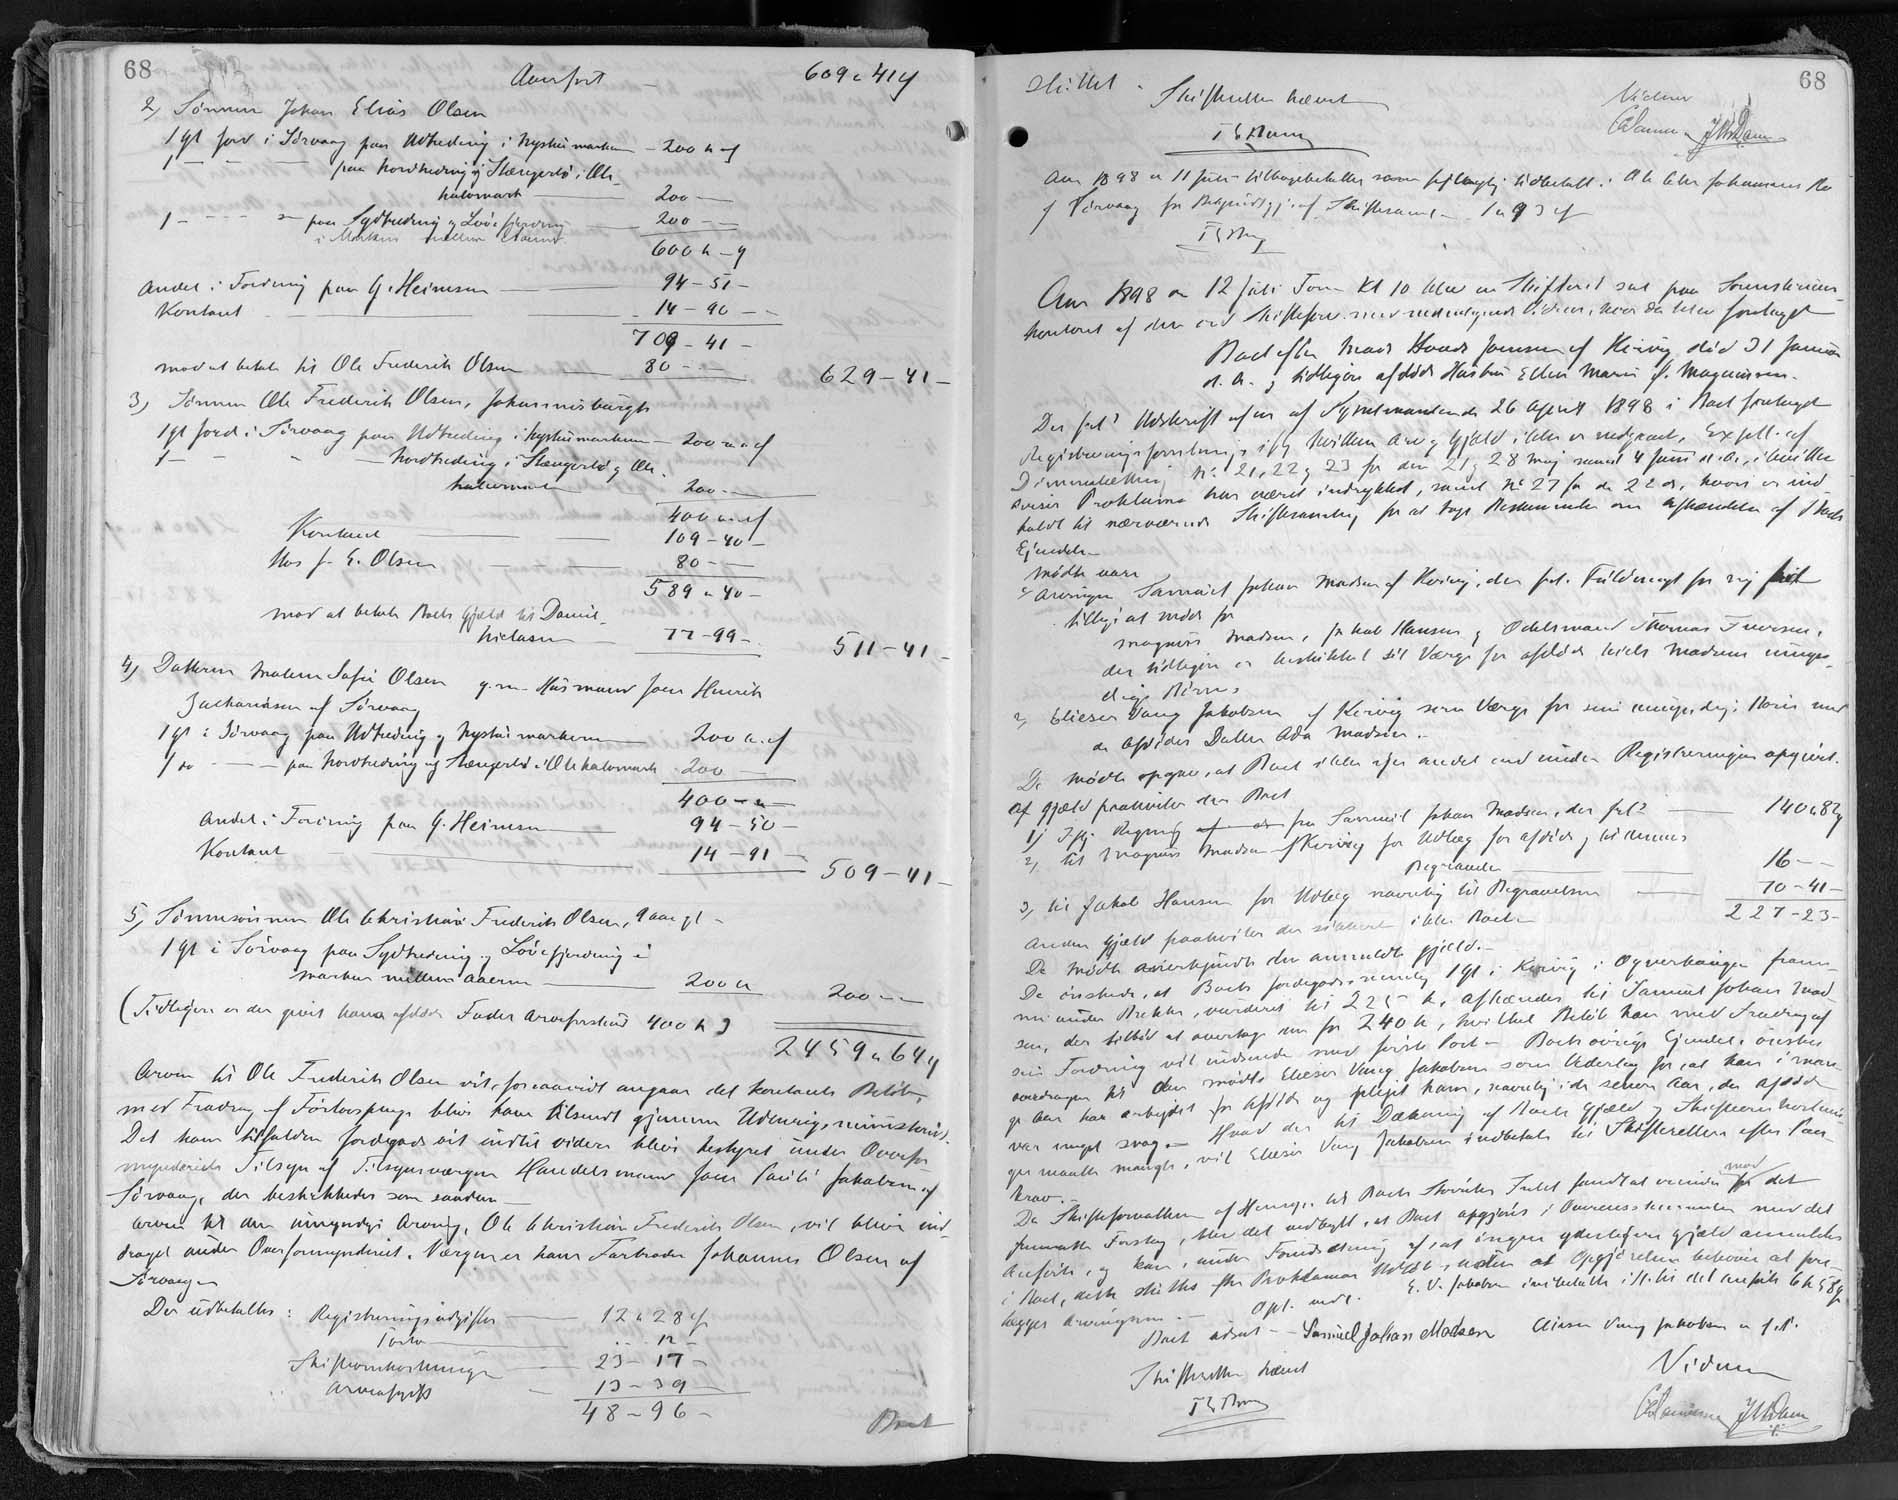 68
Anført — 609 " 41 y
2) Sønnen Johan Elias Olsen
1 gl Jord i Sörvaag paa Udtreding i Nyhûsmarken — 200 " "
1 — — — paa Nordtreding i Stængerbö i Ole-
halvmark — 200 —
1 — — — paa Sydtreding og Lövefjerding
i Marken mellem Aaerne — 200 —
600 k - y
Andel i Fordring paa G. Heinesen — 94 - 51 -
Kontant — 14 - 90 -
709 - 41 -
mod at betale til Ole Frederik Olsen — 80 - — 629 - 41 -
3) Sönnen Ole Frederik Olsen, Johannisburgh
1 gl Jord i Sörvaag paa Udtreding i Nyhûsmarken — 200 " "
1 — — — Nordtreding i Stængerbö og Ole-
halvmark — 200 —
400 " "
Kontant — 109 - 40 -
Hos J. E. Olsen — 80 - —
589 " 40 -
mod at betale Boets Gjæld til Daniel
Niclasen — 77 - 99 - 511 - 41 -
4) Datteren Malene Sofie Olsen g. m. Húsmand Joen Henrik
Zachariasen af Sörvaag
1 gl i Sörvaag paa Udtreding og Nyhûsmarken — 200 " "
1 do — — paa Nordtreding og Stængerbö i Olehalvmark — 200 —
400 - " -
Andel i Fordring paa G. Heinesen — 94 - 50 -
Kontant — 14 - 91 - 509 - 41 -
5) Sönnesönnen Ole Christian Frederik Olsen, 9 aar gl -
1 gl i Sörvaag paa Sydtreding og Lövefjerding i
Marken mellem Aaerne — 200 " 200 - -
(Tidligere er der givet hans afdöde Fader Arveforskud 400 k)
2459 " 64 y
Arven til Ole Frederik Olsen vil, forsaavidt angaar det kontante Belöb,
med Fradrag af Förlovspenge blive ham tilsendt gjennem Udenrigsministeriet.
Det ham tilfaldne Jordegods vil indtil videre blive bestyret under Overfor-
mynderiets Tilsyn af Tilsynsværgen Handelsmand Joen Pauli Jakobsen af
Sörvaag, der beskikkedes som saadan —
Arven til den umyndige Arving, Ole Christian Frederik Olsen, vil blive ind-
draget under Overformynderiet. Værge er hans Farbroder Johannes Olsen af
Sörvaag —
Der udbetaltes: Registreringsudgifter — 12 " 28 y
Porto — .. 12 -
Skifteomkostninger — 23 - 17 -
Arveafgift — 13 - 39 -
48 - 96 -
Boet
68
sluttet -
Skifteretten hævet
Vidner
Aar 1898 d 11 Juli tilbagebetaltes som fejlagtig udbetalt: Ole Chr. Johannesen
af Sörvaag for 1 " 93 "
Aar 1898 d 12 Juli Form. Kl 10 blev en Skifteret sat paa Sorenskriver-
kontoret af den ord. Skifteforv. med medundertegnede Vidner, hvor da blev foretaget
Boet efter Mads Joensen af Kirvig död 31 Januar
d. A. og tidligere afdöde Hustru Ellen Marie f. Magnussen.
Der frl? Udskrift af en af Sysselmanden d 26 April 1898 i Boet foretaget
Registreringsforretning, ifg hvilken Arv og Gjæld ikke er vedgaaet, Expll. af
Dimmalætting Nr 21, 22 og 23 for den 21 og 28 Maj samt 4 Juni d. A., i hvilke
Proklama har været indrykket, samt Nr 27 for d 2 ds, hvori er ind-
kaldt til nærværende Skiftesamling for at tage Bestemmelse om Afhændelse af Boets
Ejendele
Mödte vare
Arvingen Samuel Johan Madsen af Kirvig, der frl. Fuldmagt for sig
tillige at möde for
Magnus Madsen, Jakob Hansen og Odelsmand Thomas Iversen,
der tidligere er beskikket til Værge for afdöde Niels Madsens umyn-
dige Börn
2) Elieser Vang Jakobsen af Kirvig som Værge for sine umyndige Börn med
de afdödes Datter Ada Madsen.
De mödte opgave, at Boet ikke ejer andet end under Registreringen opgivet.
Af Gjæld paahviler der Boet
1) Ifg Regning fra Samuel Johan Madsen, der frl? — 140 " 82 y
2) til Magnus Madsen Kirvig for Udlæg for afdöde, til dennes
Begravelse — 16 - -
3) til Jakob Hansen for Udlæg navnlig til Begravelsen — 70 - 41 -
227 - 23 -
Anden Gjæld paahviler der sikkert ikke Boet
De mödte anerkjendte den anmeldte Gjæld.
De önskede, at Boets Jordegods, nemlig 1 gl i Kirvig i
under Brekke, vurderet til 225 k, afhændes til Samuel Johan Mad-
sen, der tilböd at overtage den for 240 k, hvilket Belöb han med Fradrag af
sin Fordring vil indsende med förste Post — Boets övrige Ejendele önskes
overdragne til den mödte Elieser Vang Jakobsen som Vederlag for, at han i man-
ge Aar har arbejdet for Afdöde og plejet ham, navnlig i de senere Aar, da afdöde
var meget svag — Hvad der til Dækning af Boets Gjæld og Skifteomkostnin-
ger maatte mangle, vil Elieser Vang Jakobsen indbetale til Skifteretten efter Paa-
krav.
Da Skifteforvalteren af Hensyn til Boets Störrelse Intet fandt at erindre mod det
fremsatte Forslag, blev det vedtaget, at Boet opgjöres i Overensstemmelse med det
Anförte, og kan, under Forudsætning af, at ingen yderligere Gjæld anmeldes
i Boet, dette sluttes efter Proklamas Udlöb, uden at Opgjörelsen behöver at fore-
lægges Arvingerne. — E. V. Jakobsen indbetalte det anförte 6 k 58 y
Opl. vedt.
Boet udsat — Samuel Johan Madsen Elieser Vang Jakobsen m. f. P.
Skifteretten hævet
Vidner